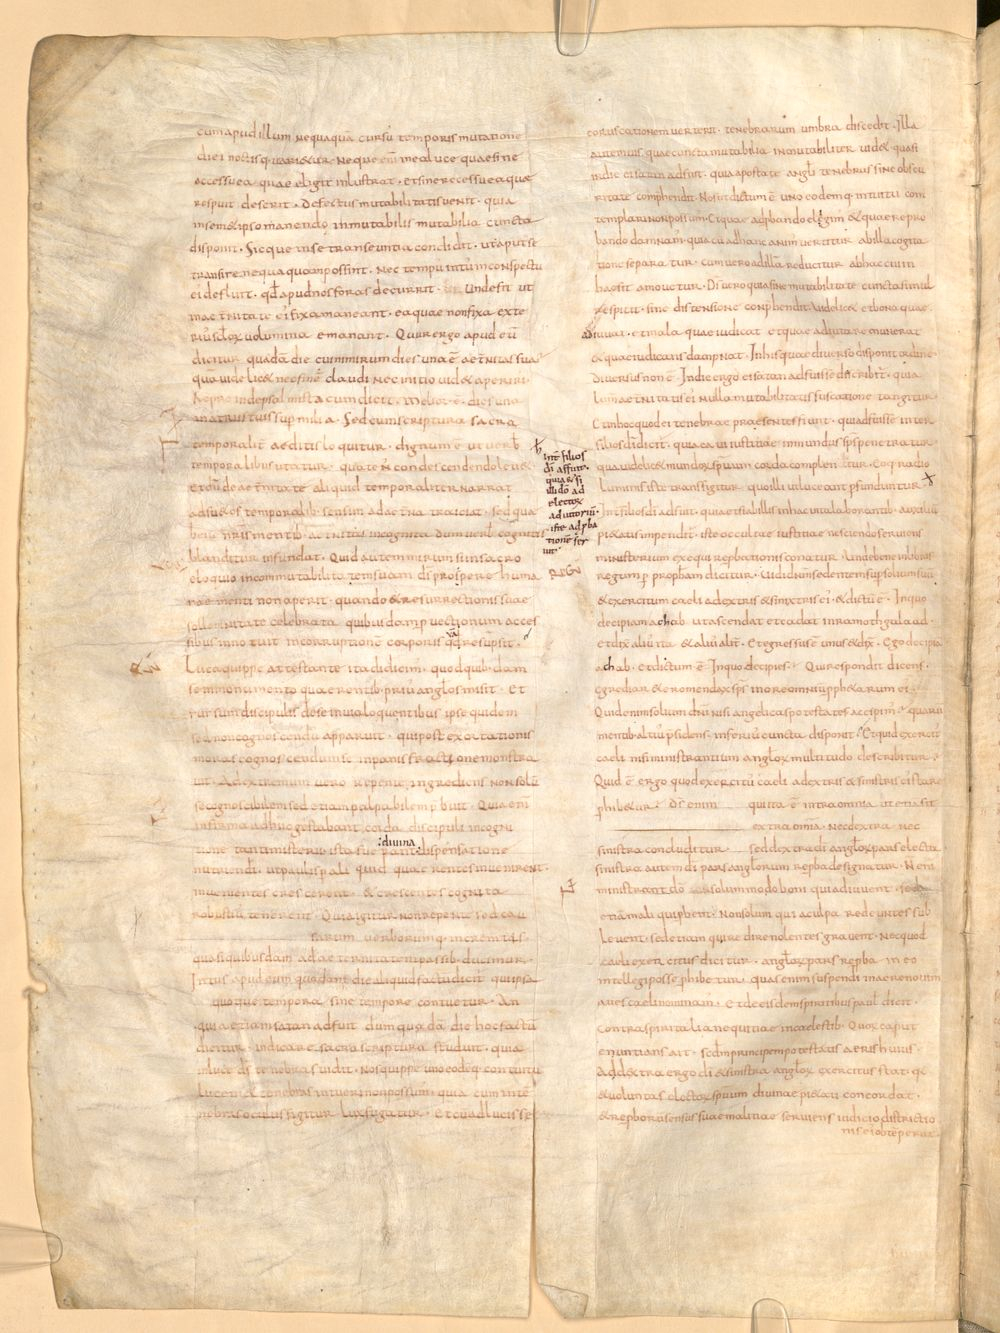 cum apud illum nequaquā cursū temporis mutatione
diei noctisq· uariet̄ur· Neque enī mea luce quae sine
accessu ea quae eligit inlustrat· et sine recessu ea quae
respuit deserit· Defectus mutabilitatis uenit· quia
in semetipso manendo inmutabilis mutabilia cuncta
disponit· Sicque in se transeuntia condidit· ut apud se
transire nequaquam possint· Nec tempus intus in conspectu
eius defluit· qđ apud nos foras decurrit· Unde fit ut
in aeternitate eius fixa maneant· ea quae non fixa exte
rius seculorum uolumina emanant· Cur ergo apud eum
dicitur quadā die cuius nimirum dies una ē aeternitas sua·
quam uidelicet nec fine claudi nec initio uidet aperiri·
psalmista cum dicit· Melior ē dies una
in atriis tuis sup milia· Sed cum scriptura sacra
temporalit aeditis loquitur· dignum ē ut uerb
temporalibus utatur· quatenus condescendendo leuet·
Et dum de aeternitate aliquid temporaliter narrat
adsuetos temporalib· sensim ad aeterna traiciat· sed qua
bene nris mentib· aeternitas incognita dum uerb cognitis
blanditur infundat· Quid autem mirum si in sacro
eloquio incommutabilitatem suam ds prospere huma
nae menti non aperit· quando et resurrectionis suae
sollemnitate celebrata quibusdam puectionum acces
sibus innotuit incorruptionē corporis qđ resūpsit·
Luca quippe attestante ita didicim· quod quib·dam
se in monumento quaerentib· prius anglos misit· Et
rursum discipulis de se in uia loquentibus ipse quidem
sed non cognoscendus apparuit· qui post exortationis
moras cognoscendum se in panis fractione monstra
uit· Ad extremum uero repente ingrediens non solū
se cognoscibilem sed etiam palpabilem p̄buit· Quia enī
infirma adhuc gestabant corda discipuli in cogni
:diuina
tione tanti misterii ista fuerant dispensatione
nutriendi· ut paulis pali quid quaerentes inuenirent·
inuenientes crescerent· et crescentes cognita
robustius tenerent· Quia igitur non repente sed cau
sarum uerborumq· incremtis
quasi quibusdam ad aeternitatem passib· ducimur·
Intus apud eum quadam die aliquid factū dicit· qui ipsa
quoque tempora sine tempore contuetur· An
quia etiam satan adfuit dum quadā die hoc factū
dicitur· indicare sacra scriptura studuit· quia
in luce ds tenebras uidit· Nos quippe uno eodēq· contuitu
lucem et tenebras intueri non possum· quia cum in te
nebras oculus figitur lux fugatur· Et cum ad lucis se
Int filios
dī affuit·
quia et si
illi dō ad
electorū
adiutoriū·
iste ad pba
tionē ser
uit·
coruscationem uerterit· tenebrarum umbra discedit· Illa
autem uis quae cuncta mutabilia inmutabiliter uidet quasi
in die ei satan adfuit· quia apostatae angli tenebras sine obscu
ritate comphendit· Nos ut dictum ē uno eodemq· intuitu con
templari non possum· Et quae adpbando elegim & quae repro
bando damnam· quia cū ad hanc animus uertitur ab illa cogita
tione separatur· cum uero ad illā reducitur ab hac cui in
haesit amouetur· Ds uero quia sine mutabilitate cuncta simul
respicit· sine distensione conphendit· uidelicet et bona quae
adiuuat· et mala quae iudicat· et quae adiutare munerat·
& quae iudicans dampnat· In his quae diuerso disponit ordine·
Diuersus non ē· In die ergo ei satan adfuisse describit· quia
lumē aeternitatis ei nulla mutabilitatis fuscatione tangitur·
Et in hoc quod ei tenebrae praesentes fiunt· quia adfuisse inter
filios dī dicit· quia ea ui iustitiae inmundus sps penetratur
qua uidelicet mundorum spirituum corda complentur· Eoq· radio
luminis iste transfigitur quo illi ut luceant pfunduntur·
Int filios dī adfuit· quia etsi ab illis in hac uita laborantib· auxiliū
pietatis impendit· iste occultae iustitiae nesciendo seruiens
ministerium exequi repbationis conatur· Unde bene in libris
regum p propham dicitur· Uidi dnm sedentem sup solium suū
& exercitum caeli a dextris & sinistris ei· & dictū ē· In quo
decipiam achab· ut ascendat et cadat in ramoth galaad·
Et dix alius ita & alius alit· Et egressus ē unus & dix· Ego decipiā
achab· Et dictum ē· In quo decipies· Qui respondit dicens·
Egrediar & ero mendax sps in ore omniū pphetarum ei·
Quid enim solium dni nisi angelicas potestates accipim· quarū
mentib· altius psidens inferius cuncta disponit· Et quid exercit
caeli nisi ministrantium anglorum multitudo describitur·
Quid ē ergo quod exercitus caeli a dextris & sinistris ei stare
phibetur· Ds enim qui ita ē intra omnia ut etiā sit
extra omīa· nec dextra nec
sinistra concluditur· sed dextra di anglorum pars electa·
sinistra autem di pars anglorum repba designatur· N enī
ministrant dō solummodo boni qui adiuuent· sed
etiā mali qui pbent· Non solum qui a culpa redeuntes sub
leuent· sed etiam qui redire nolentes grauent· Nec quod
caeli exercitus dicitur· anglorum pars repba in eo
intellegi posse phibetur· quas enim suspendi in aere nouim
aues caeli nominam· Et de eisdem spiritibus paul dicit·
Contra spiritalia nequitiae in caelestib· Quorum caput
enuntians ait· secdm principem potestatis aeris huius·
Ad dextra ergo di & sinistra anglorum exercitus stat· qa
& uoluntas electorum spirituum diuinae pietati concordat·
& reproborū sensus suae malitiae seruiens iudicio districtio
nis ei obtēperat·